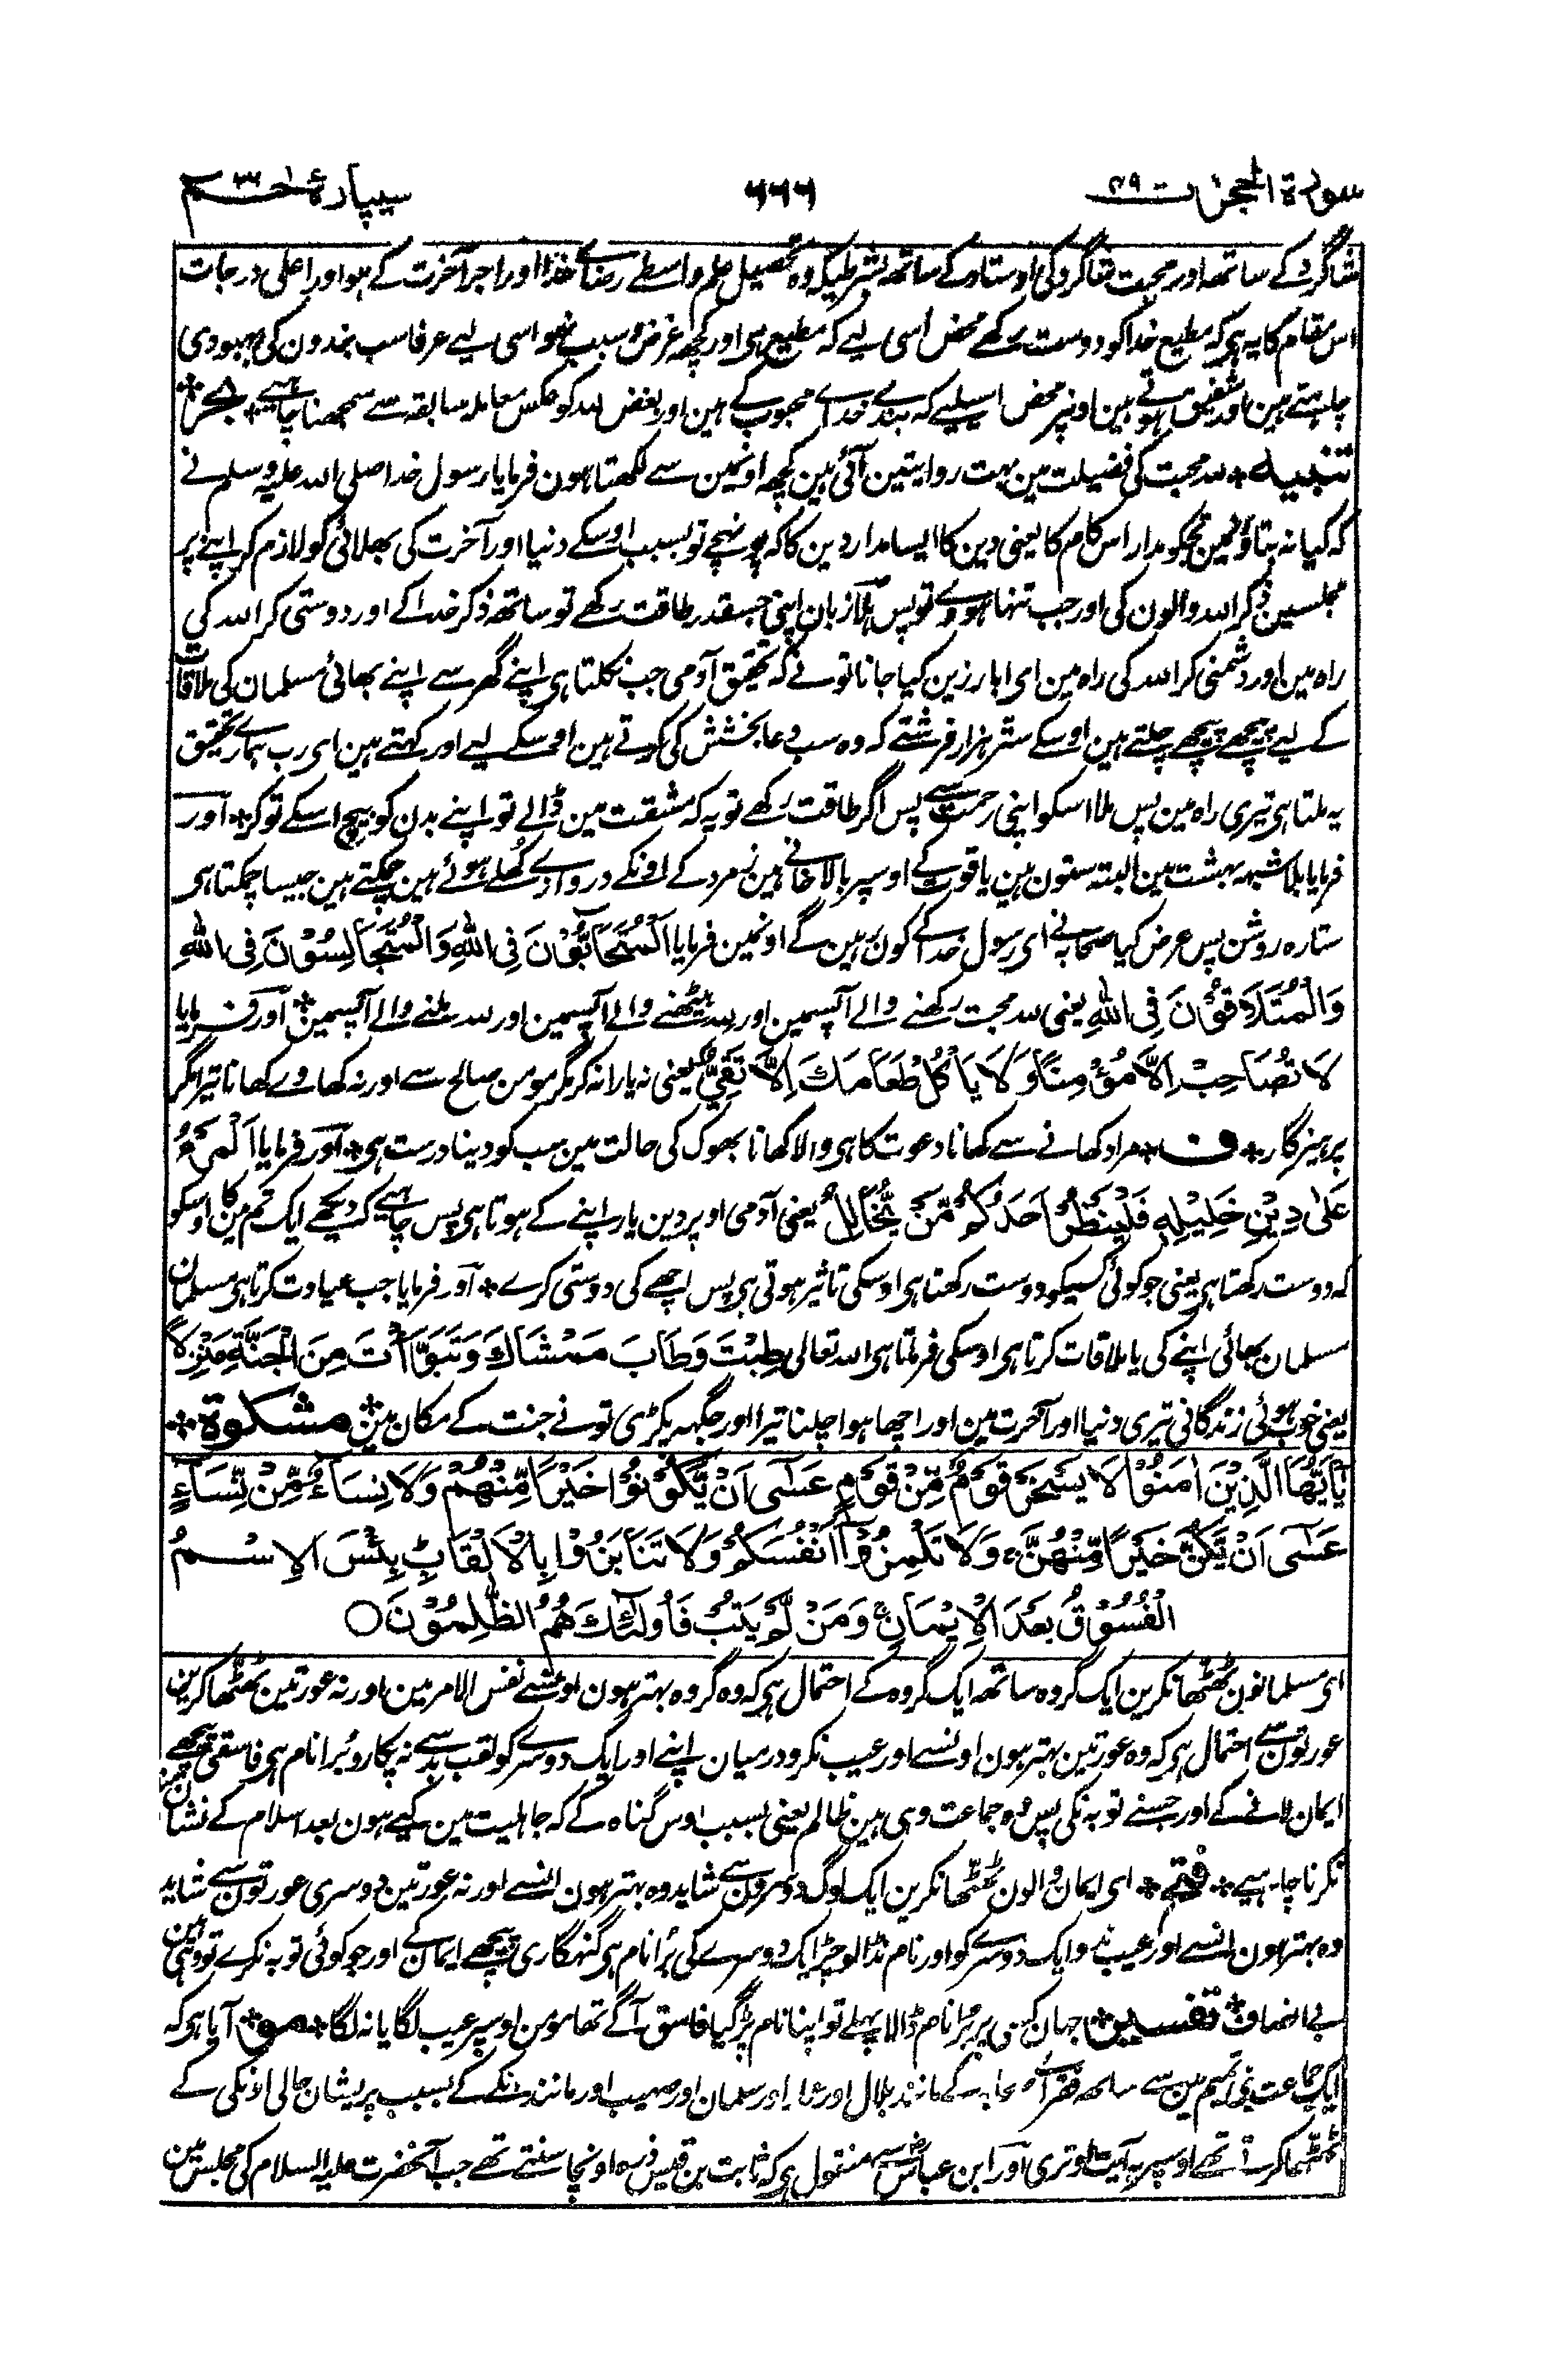 سورة الحجرٰت ۴۹
۶۶۶
سیپارۂ حٰم ۲۶
شاگرد کے ساتھ اور محبت شاگرد کی اوستاد کے ساتھ بشرطیکہ وہ تحصیل علم واسطے رضاے خدا اور اجر آخرت کے ہو اور اعلی درجات
اس مقام کا یہ ہی کہ مطیع خدا کو دوست رکھے محض اسی لیے کہ مطیع ہی اور کچھ غرض و سبب نہو اسی لیے عرفا سب بندون کی بہبودی
چاہتے ہین اور شفیق ہوتے ہین اونپر محض اسلیے کہ بندے خداے محبوب کے ہین اور بغض للہ کو عکس معاملہ سابقہ سے سمجھنا چاہیے * بحر *
تنبیہ * للہ محبت کی فضیلت مین بہت روایتین آئی ہین کچھ اونمین سے لکھتا ہون فرمایا رسول خدا صلی اللہ علیہ وسلم نے
کہ کیا نہ بتاؤن مین تجکو مدار اس کام کا یعنی دین کا ایسا مدار دین کا کہ پہونچے تو بسبب اوسکے دنیا اور آخرت کی بھلائی کو لازم کر اپنے پر
مجلسین ذکر اللہ والون کی اور جب تنہا ہووے تو پس ہلا زبان اپنی جسقدر طاقت رکھے تو ساتھ ذکر خدا کے اور دوستی کر اللہ کی
راہ مین اور دشمنی کر اللہ کی راہ مین ای ابا رزین کیا جانا تونے کہ تحقیق آدمی جب نکلتا ہی اپنے گھر سے اپنے بھائی مسلمان کی ملاقات
کے لیے پیچھے پیچھے چلتے ہین اوسکے ستر ہزار فرشتے کہ وہ سب دعا بخشش کی کرتے ہین اوسکے لیے اور کہتے ہین ای رب ہمارے تحقیق
یہ ملتا ہی تیری راہ مین پس ملا اسکو اپنی رحمت سے پس اگر طاقت رکھے تو یہ کہ مشقت مین ڈالے تو اپنے بدن کو بیچ اسکے تو کر * اور
فرمایا بلا شبہہ بہشت مین البتہ ستون ہین یاقوت کے اوسپر بالا خانے ہین زمرد کے اونکے دروازے کھلے ہوئے ہین چمکتے ہین جیسا چمکتا ہی
ستارہ روشن پس عرض کیا صحابہ نے ای رسول خدا کے کون رہین گے اونمین فرمایا اَلْمُتَحَآبُّوْنَ فِی اللّٰهِ وَالْمُتَجَالِسُوْنَ فِی اللّٰهِ
وَالْمُتَلَاقُوْنَ فِی اللّٰهِ یعنی للہ محبت رکھنے والے آپسمین اور للہ بیٹھنے والے آپسمین اور للہ ملنے والے آپسمین * اور فرمایا
لَا تُصَاحِبْ اِلَّا مُؤْمِنًا وَّلَا یَاْکُلْ طَعَامَكَ اِلَّا تَقِیٌّ یعنی نہ یارانہ کر مگر مومن صالح سے اور نہ کھاوے کھانا تیرا مگر
پرہیزگار * ف * مراد کھانے سے کھانا دعوت کا ہی والا کھانا بھوک کی حالت مین سب کو دینا درست ہی * اور فرمایا اَلْمَرْءُ
عَلٰی دِیْنِ خَلِیْلِهٖ فَلْیَنْظُرْ اَحَدُکُمْ مَّنْ یُّخَالِلُ یعنی آدمی اوپر دین یار اپنے کے ہوتا ہی پس چاہیے کہ دیکھے ایک تم مین کا اوسکو
کہ دوست رکھتا ہی یعنی جو کوئی کسیکو دوست رکھتا ہی اوسکی تاثیر ہوتی ہی پس اچھے کی دوستی کرے * اور فرمایا جب عیادت کرتا ہی مسلمان
مسلمان بھائی اپنے کی یا ملاقات کرتا ہی اوسکی فرماتا ہی اللہ تعالی طِبْتَ وَطَابَ مَمْشَاكَ وَتَبَوَّأْتَ مِنَ الْجَنَّةِ مَنْزِلًا
یعنی خوب ہوئی زندگانی تیری دنیا اور آخرت مین اور اچھا ہوا چلنا تیرا اور جگہہ پکڑی تونے جنت کے مکان مین * مشکوة *
یٰٓاَیُّهَا الَّذِیْنَ اٰمَنُوْا لَا یَسْخَرْ قَوْمٌ مِّنْ قَوْمٍ عَسٰٓی اَنْ یَّکُوْنُوْا خَیْرًا مِّنْهُمْ وَلَا نِسَآءٌ مِّنْ نِّسَآءٍ
عَسٰٓی اَنْ یَّکُنَّ خَیْرًا مِّنْهُنَّ ۚ وَلَا تَلْمِزُوْٓا اَنْفُسَکُمْ وَلَا تَنَابَزُوْا بِالْاَلْقَابِ ؕ بِئْسَ الِاسْمُ
الْفُسُوْقُ بَعْدَ الْاِیْمَانِ ۚ وَمَنْ لَّمْ یَتُبْ فَاُولٰٓئِكَ هُمُ الظّٰلِمُوْنَ ○
ای مسلمانون ٹھٹھا نکرین ایک گروہ ساتھ ایک گروہ کے احتمال ہی کہ وہ گروہ بہتر ہون اونسے نفس الامر مین اور نہ عورتین ٹھٹھا کرین
عورتون سے احتمال ہی کہ وہ عورتین بہتر ہون اونسے اور عیب نکرو درمیان اپنے اور ایک دوسرے کو لقب بد سے نہ پکارو برا نام ہی فاسقی پیچھے
ایمان لانے کے اور جسنے توبہ نکی پس وہ جماعت وہی ہین ظالم یعنی بسبب اوس گناہ کے کہ جاہلیت مین کیے ہون بعد اسلام کے نشان مند
نکرنا چاہیے * فتح * ای ایمان والون ٹھٹھا نکرین ایک لوگ دوسرون سے شاید وہ بہتر ہون انسے اور نہ عورتین دوسری عورتون سے شاید
وہ بہتر ہون انسے اور عیب ندو ایک دوسرے کو اور نام نڈالو چڑ ایک دوسرے کی برا نام ہی گنہگاری پیچھے ایمان کے اور جو کوئی توبہ نکرے تو وہی ہین
بے انصاف * تفسیر * جہان کسی پر برا نام ڈالا پہلے تو اپنا نام پڑ گیا فاسق آگے تھا مومن اوسپر عیب لگا یا نہ لگا * مو * آیا ہی کہ
ایک جماعت بنی تمیم مین سے ساتھ فقراے صحابہ کے مانند بلال اور عمار اور سلمان اور صہیب اور مانند انکے کے بسبب پریشان حالی اونکی کے
ٹھٹھا کرتے تھے اوسپر یہ آیت اوتری اور ابن عباس سے منقول ہی کہ ثابت بن قیس ذرہ اونچا سنتے تھے جب آنحضرت علیہ السلام کی مجلس مین